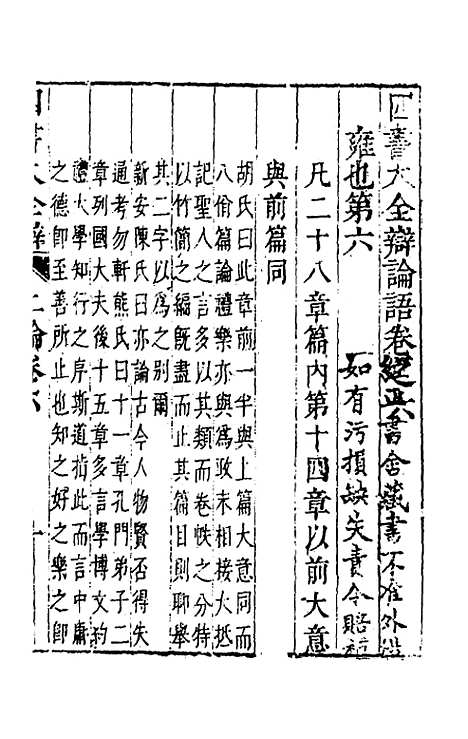 四書大全辯論語卷之六 正書舍藏書不准外借
雍也第六 如有污損缺失責令賠補
凡二十八章篇內第十四章以前大意
與前篇同
胡氏曰此章前一半與上篇大意同而
八佾篇論禮樂亦與為政末相接大抵
記聖人之言多以其類而卷帙之分特
以竹簡之編既盡而止其篇目則聊舉
其二字以為之別爾
新安陳氏曰亦論古今人物賢否得失
通考勿軒熊氏曰十一章孔門弟子二
章列國大夫後十五章多言學博文約
禮大學知行之序斯道指此而言中庸
之德即至善所止也知之好之樂之即
四書大全辯 上論卷六 一